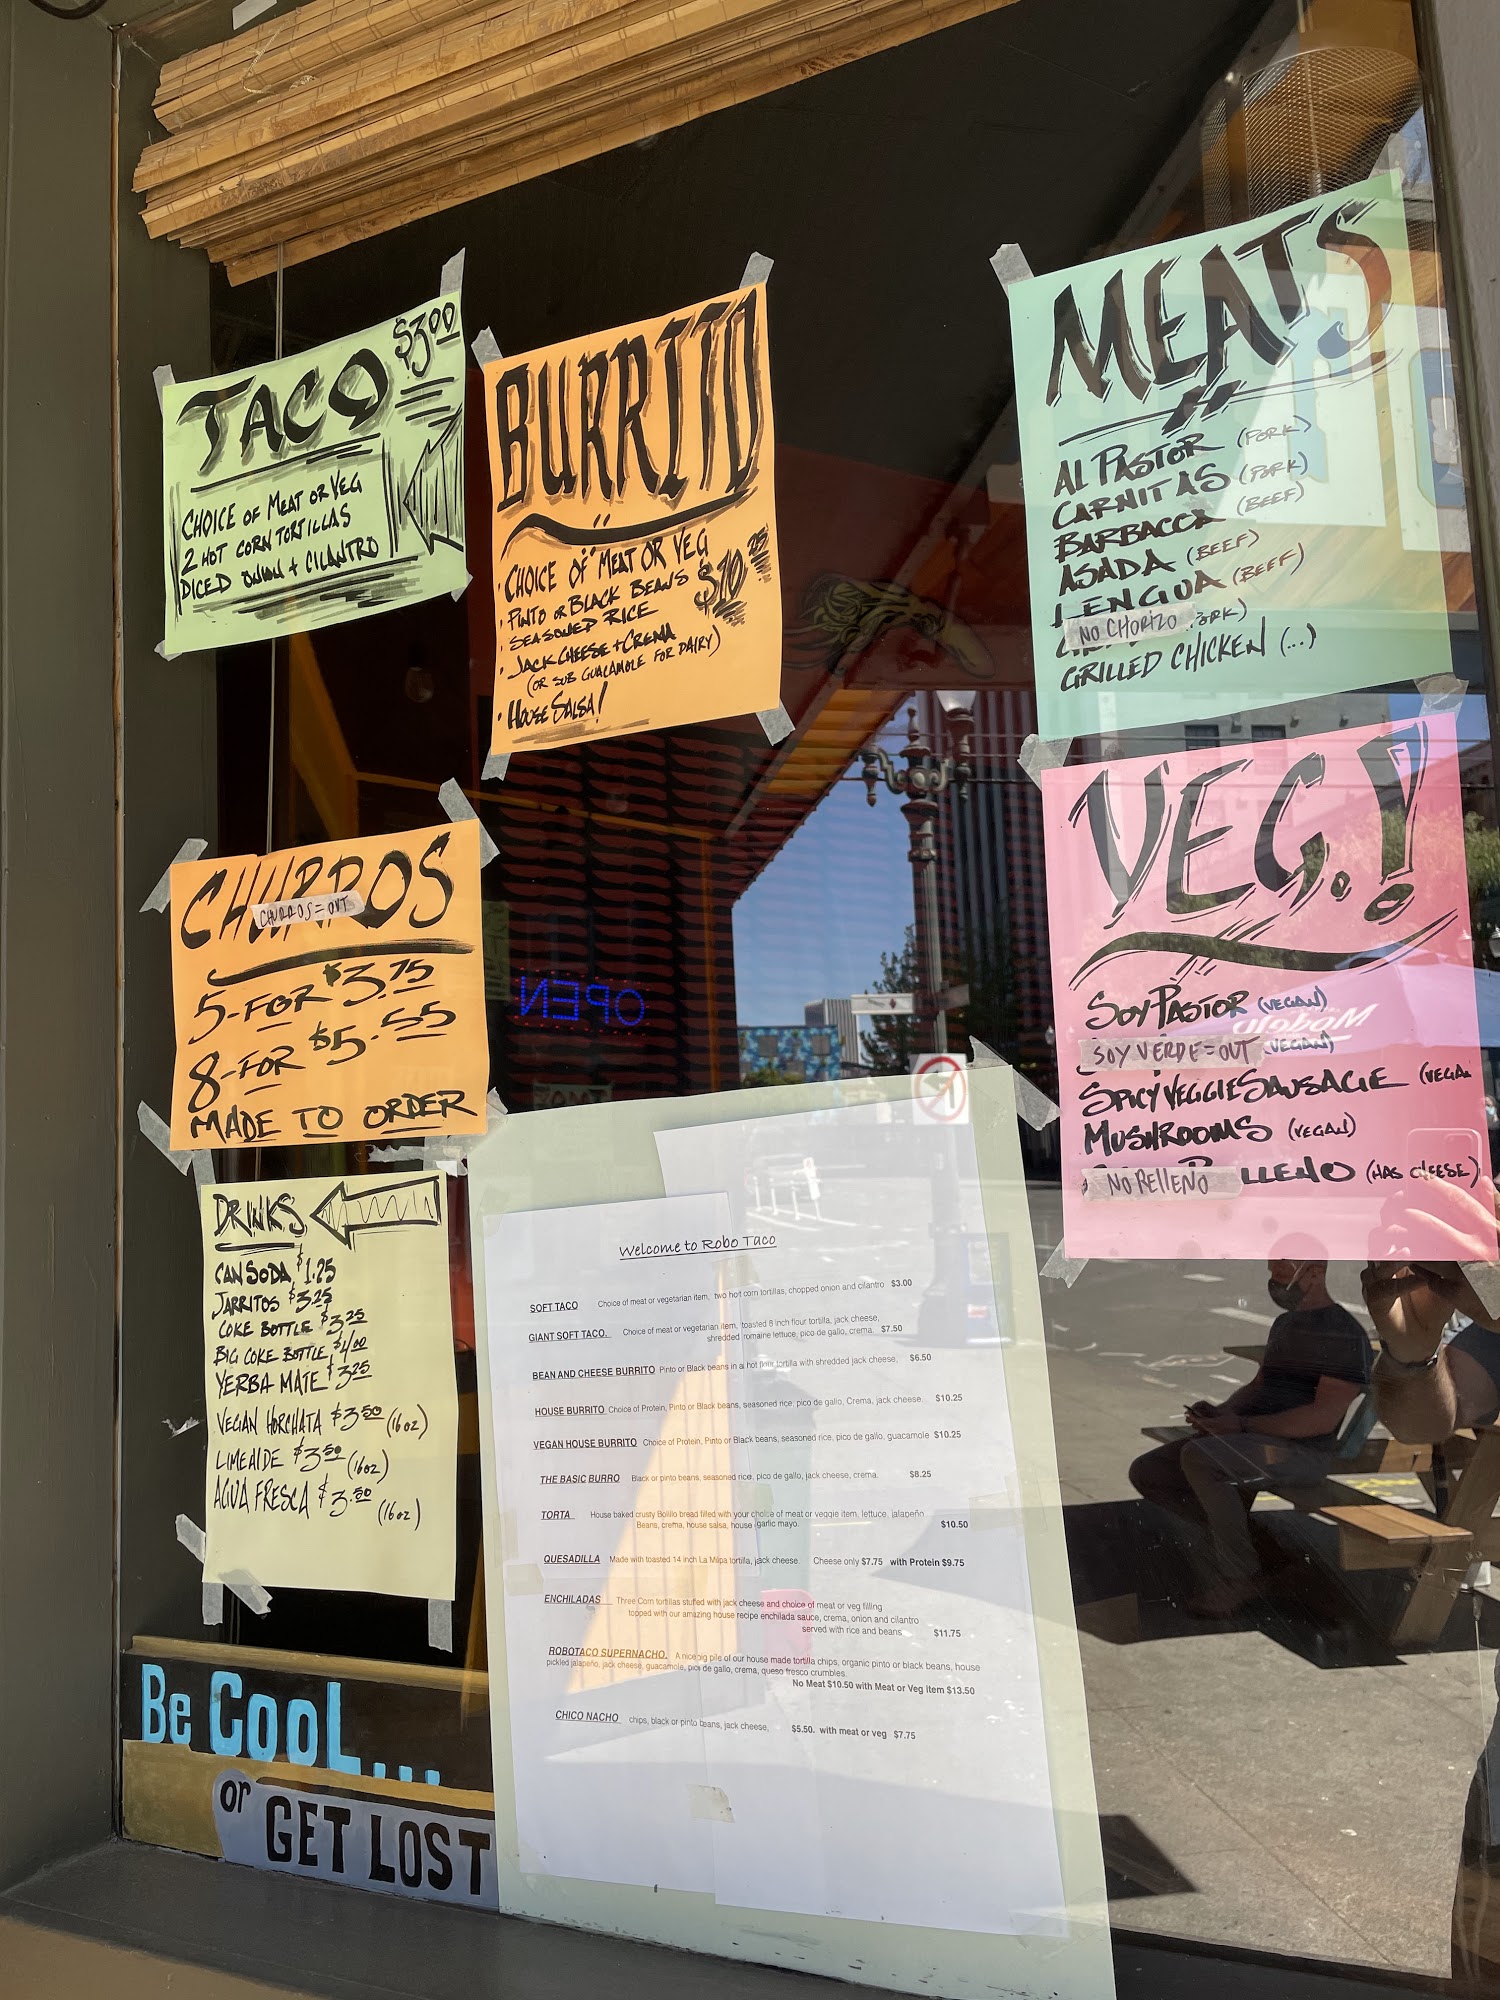 TACO $3.00
CHOICE OF MEAT OR VEG
2 HOT CORN TORTILLAS
DICED ONION + CILANTRO
BURRITO
• CHOICE OF MEAT OR VEG
• PINTO OR BLACK BEANS $10.25
• SEASONED RICE
• JACK CHEESE + CREMA
(OR SUB GUACAMOLE FOR DAIRY)
• HOUSE SALSA!
MEATS
AL PASTOR (PORK)
CARNITAS (PORK)
BARBACCA (BEEF)
ASADA (BEEF)
LENGUA (BEEF)
NO CHORIZO
GRILLED CHICKEN (...)
VEG.!
SOY PASTOR (VEGAN)
SOY VERDE = OUT (VEGAN)
SPICY VEGGIE SAUSAGE (VEGA
MUSHROOMS (VEGAN)
NO RELLENO LLENO (HAS CHEESE)
CHURROS
CHURROS = OUT
5-FOR $3.75
8-FOR $5.55
MADE TO ORDER
OPEN
Modelo
DRINKS
CAN SODA $1.25
JARRITOS $3.25
COKE BOTTLE $3.25
BIG COKE BOTTLE $4.00
YERBA MATE $3.25
VEGAN HORCHATA $3.50 (16oz)
LIMEAIDE $3.50 (16oz)
AGUA FRESCA $3.50 (16oz)
Welcome to Robo Taco
SOFT TACO Choice of meat or vegetarian item, two hot corn tortillas, chopped onion and cilantro $3.00
GIANT SOFT TACO. Choice of meat or vegetarian item, toasted 8 inch flour tortilla, jack cheese,
shredded romaine lettuce, pico de gallo, crema $7.50
BEAN AND CHEESE BURRITO Pinto or Black beans in a hot flour tortilla with shredded jack cheese, $6.50
HOUSE BURRITO Choice of Protein, Pinto or Black beans, seasoned rice, pico de gallo, Crema, jack cheese, $10.25
VEGAN HOUSE BURRITO Choice of Protein, Pinto or Black beans, seasoned rice, pico de gallo, guacamole $10.25
THE BASIC BURRO Black or pinto beans, seasoned rice, pico de gallo, jack cheese, crema. $8.25
TORTA House baked crusty Bolillo bread filled with your choice of meat or veggie item, lettuce, jalapeño
Beans, crema, house salsa, house garlic mayo. $10.50
QUESADILLA Made with toasted 14 inch La Milpa tortilla, jack cheese. Cheese only $7.75 with Protein $9.75
ENCHILADAS Three Corn tortillas stuffed with jack cheese and choice of meat or veg filling
topped with our amazing house recipe enchilada sauce, crema, onion and cilantro
served with rice and beans $11.75
ROBOTACO SUPERNACHO. A nice big pile of our house made tortilla chips, organic pinto or black beans, house
pickled jalapeño, jack cheese, guacamole, pico de gallo, crema, queso fresco crumbles.
No Meat $10.50 with Meat or Veg item $13.50
CHICO NACHO chips, black or pinto beans, jack cheese, $5.50. with meat or veg $7.75
Be CooL...
or GET LOST